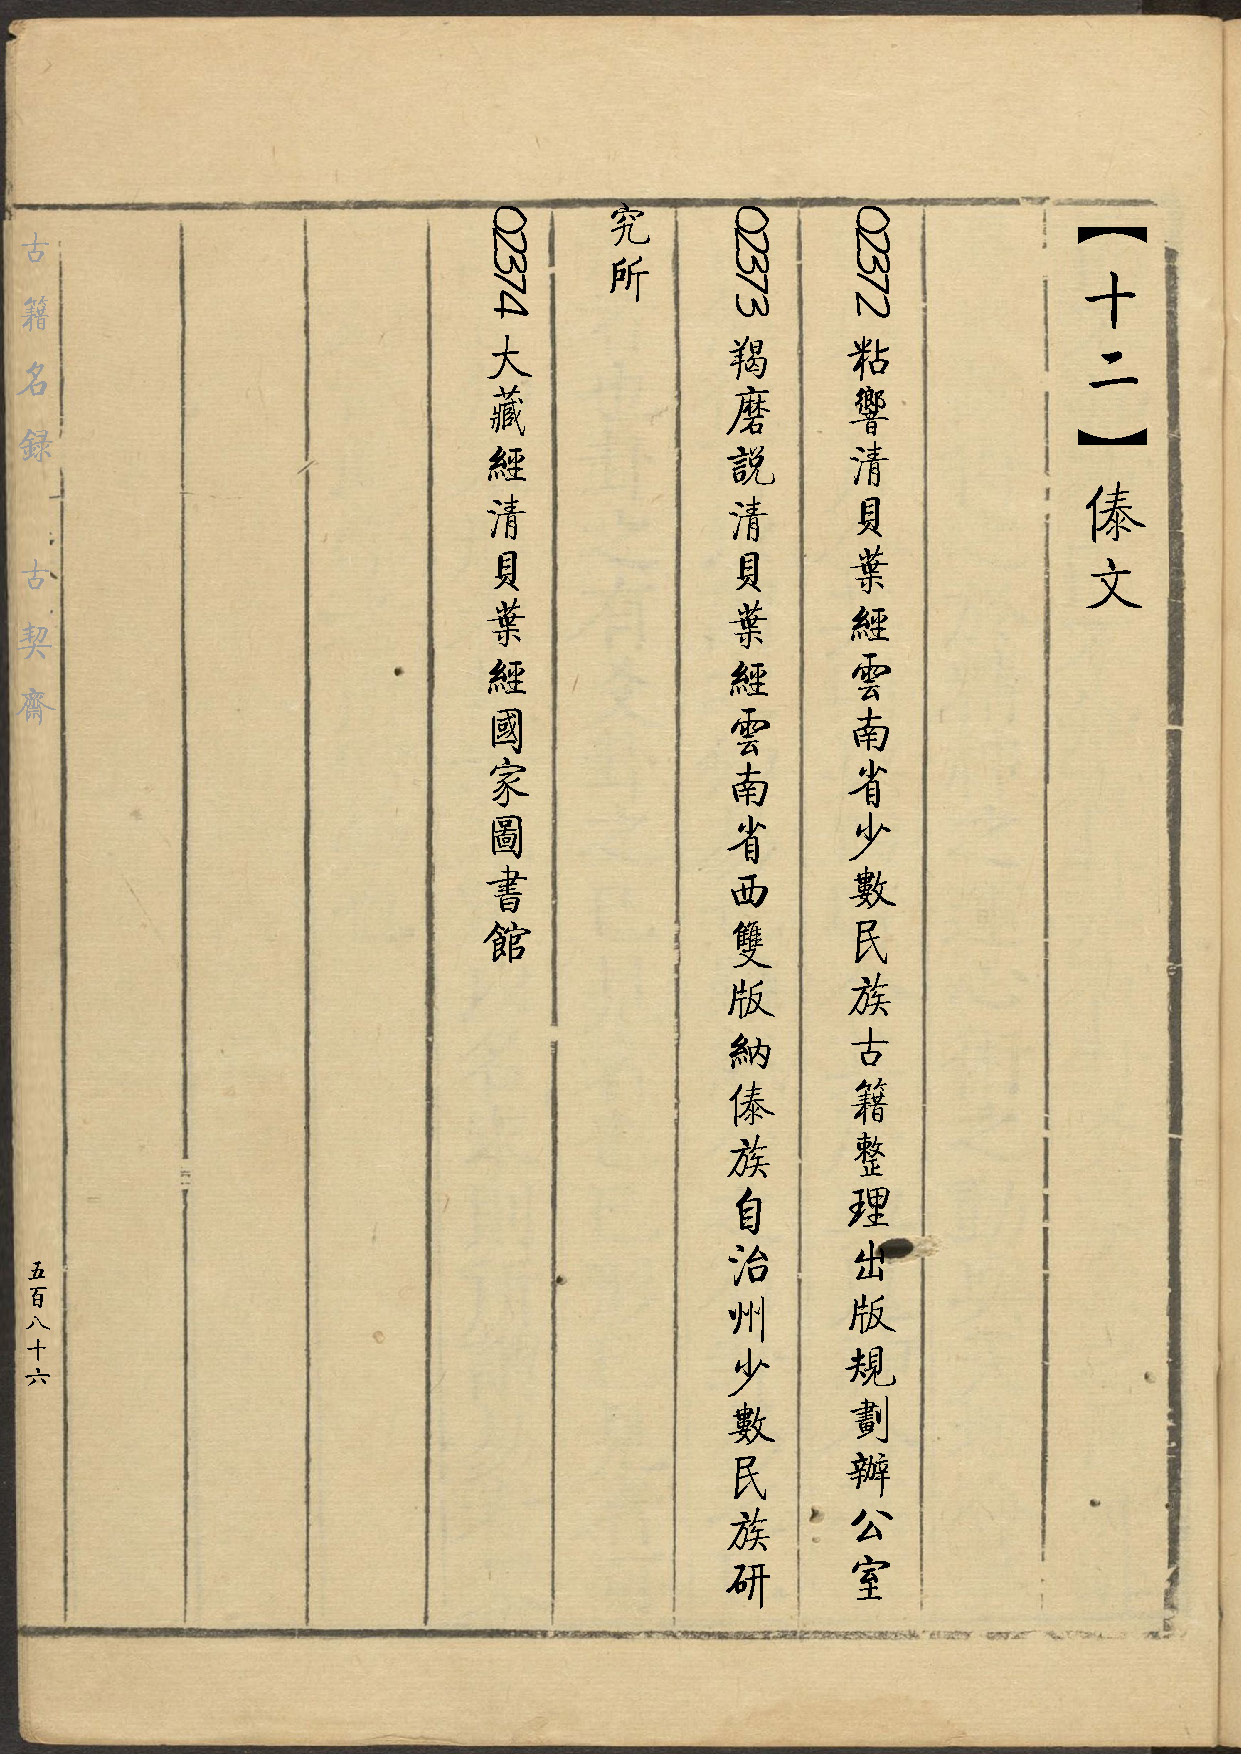 【十二】傣文
02372 粘響清貝葉經雲南省少數民族古籍整理出版規劃辦公室
02373 羯磨説清貝葉經雲南省西雙版納傣族自治州少數民族研
究所
02374 大藏經清貝葉經國家圖書館
古籍名録 古契齋
五百八十六